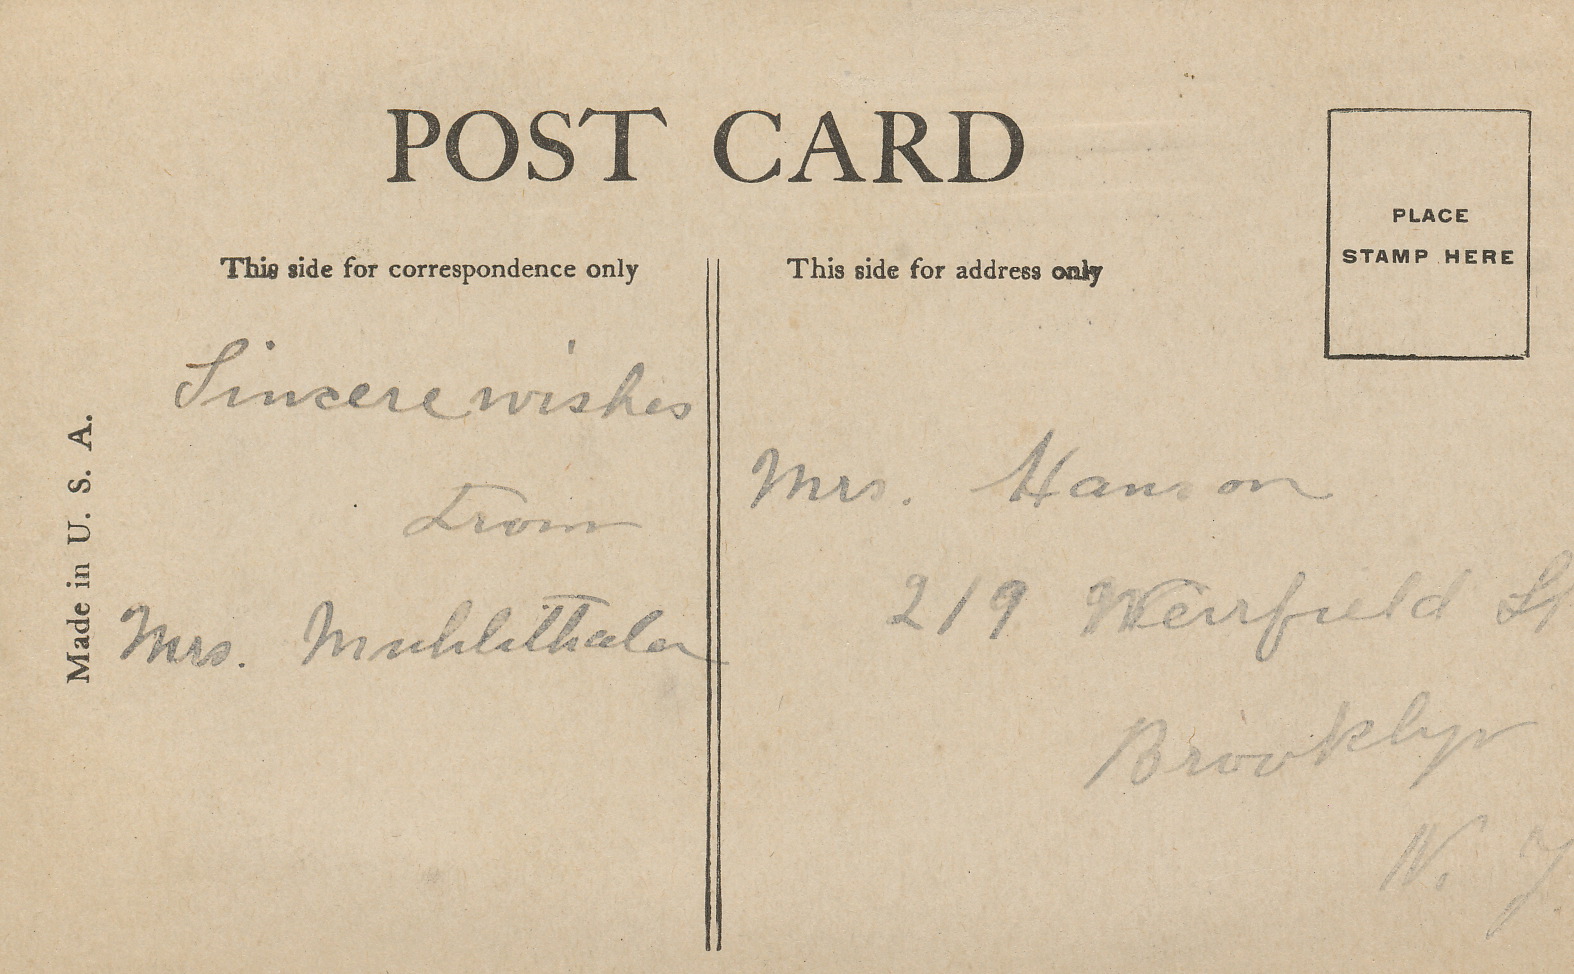 POST CARD
PLACE
STAMP HERE
This side for correspondence only
This side for address only
Made in U. S. A.
Sincere wishes
From
Mrs.
Mrs. Hanson
219 Weirfield St
Brooklyn
N. Y.